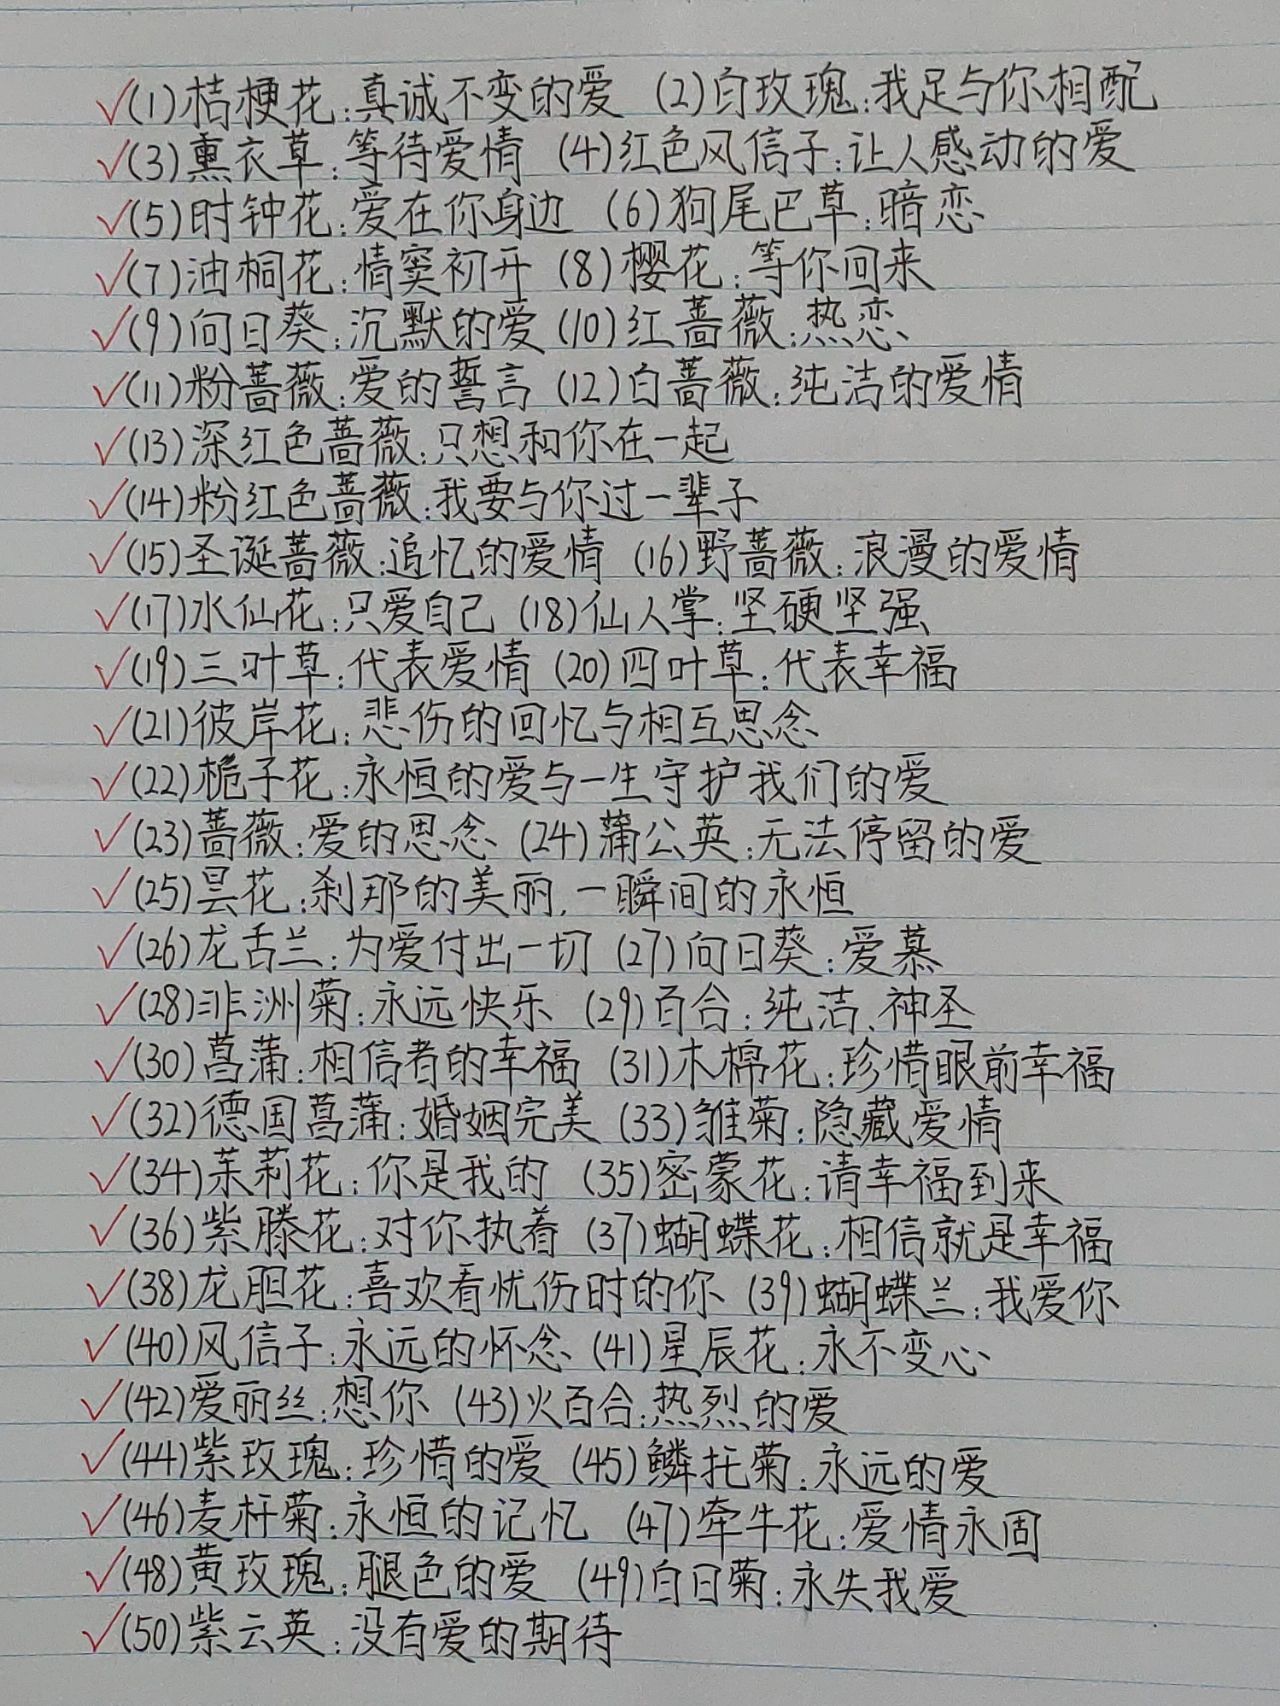 ✓(1)桔梗花:真诚不变的爱 (2)白玫瑰:我足与你相配
✓(3)熏衣草:等待爱情 (4)红色风信子:让人感动的爱
✓(5)时钟花:爱在你身边 (6)狗尾巴草:暗恋
✓(7)油桐花:情窦初开 (8)樱花:等你回来
✓(9)向日葵:沉默的爱 (10)红蔷薇:热恋
✓(11)粉蔷薇:爱的誓言 (12)白蔷薇:纯洁的爱情
✓(13)深红色蔷薇:只想和你在一起
✓(14)粉红色蔷薇:我要与你过一辈子
✓(15)圣诞蔷薇:追忆的爱情 (16)野蔷薇:浪漫的爱情
✓(17)水仙花:只爱自己 (18)仙人掌:坚硬坚强
✓(19)三叶草:代表爱情 (20)四叶草:代表幸福
✓(21)彼岸花:悲伤的回忆与相互思念
✓(22)栀子花:永恒的爱与一生守护我们的爱
✓(23)蔷薇:爱的思念 (24)蒲公英:无法停留的爱
✓(25)昙花:刹那的美丽,一瞬间的永恒
✓(26)龙舌兰:为爱付出一切 (27)向日葵:爱慕
✓(28)非洲菊:永远快乐 (29)百合:纯洁、神圣
✓(30)菖蒲:相信者的幸福 (31)木棉花:珍惜眼前幸福
✓(32)德国菖蒲:婚姻完美 (33)雏菊:隐藏爱情
✓(34)茉莉花:你是我的 (35)密蒙花:请幸福到来
✓(36)紫滕花:对你执着 (37)蝴蝶花:相信就是幸福
✓(38)龙胆花:喜欢看忧伤时的你 (39)蝴蝶兰:我爱你
✓(40)风信子:永远的怀念 (41)星辰花:永不变心
✓(42)爱丽丝:想你 (43)火百合:热烈的爱
✓(44)紫玫瑰:珍惜的爱 (45)鳞托菊:永远的爱
✓(46)麦杆菊:永恒的记忆 (47)牵牛花:爱情永固
✓(48)黄玫瑰:腿色的爱 (49)白日菊:永失我爱
✓(50)紫云英:没有爱的期待